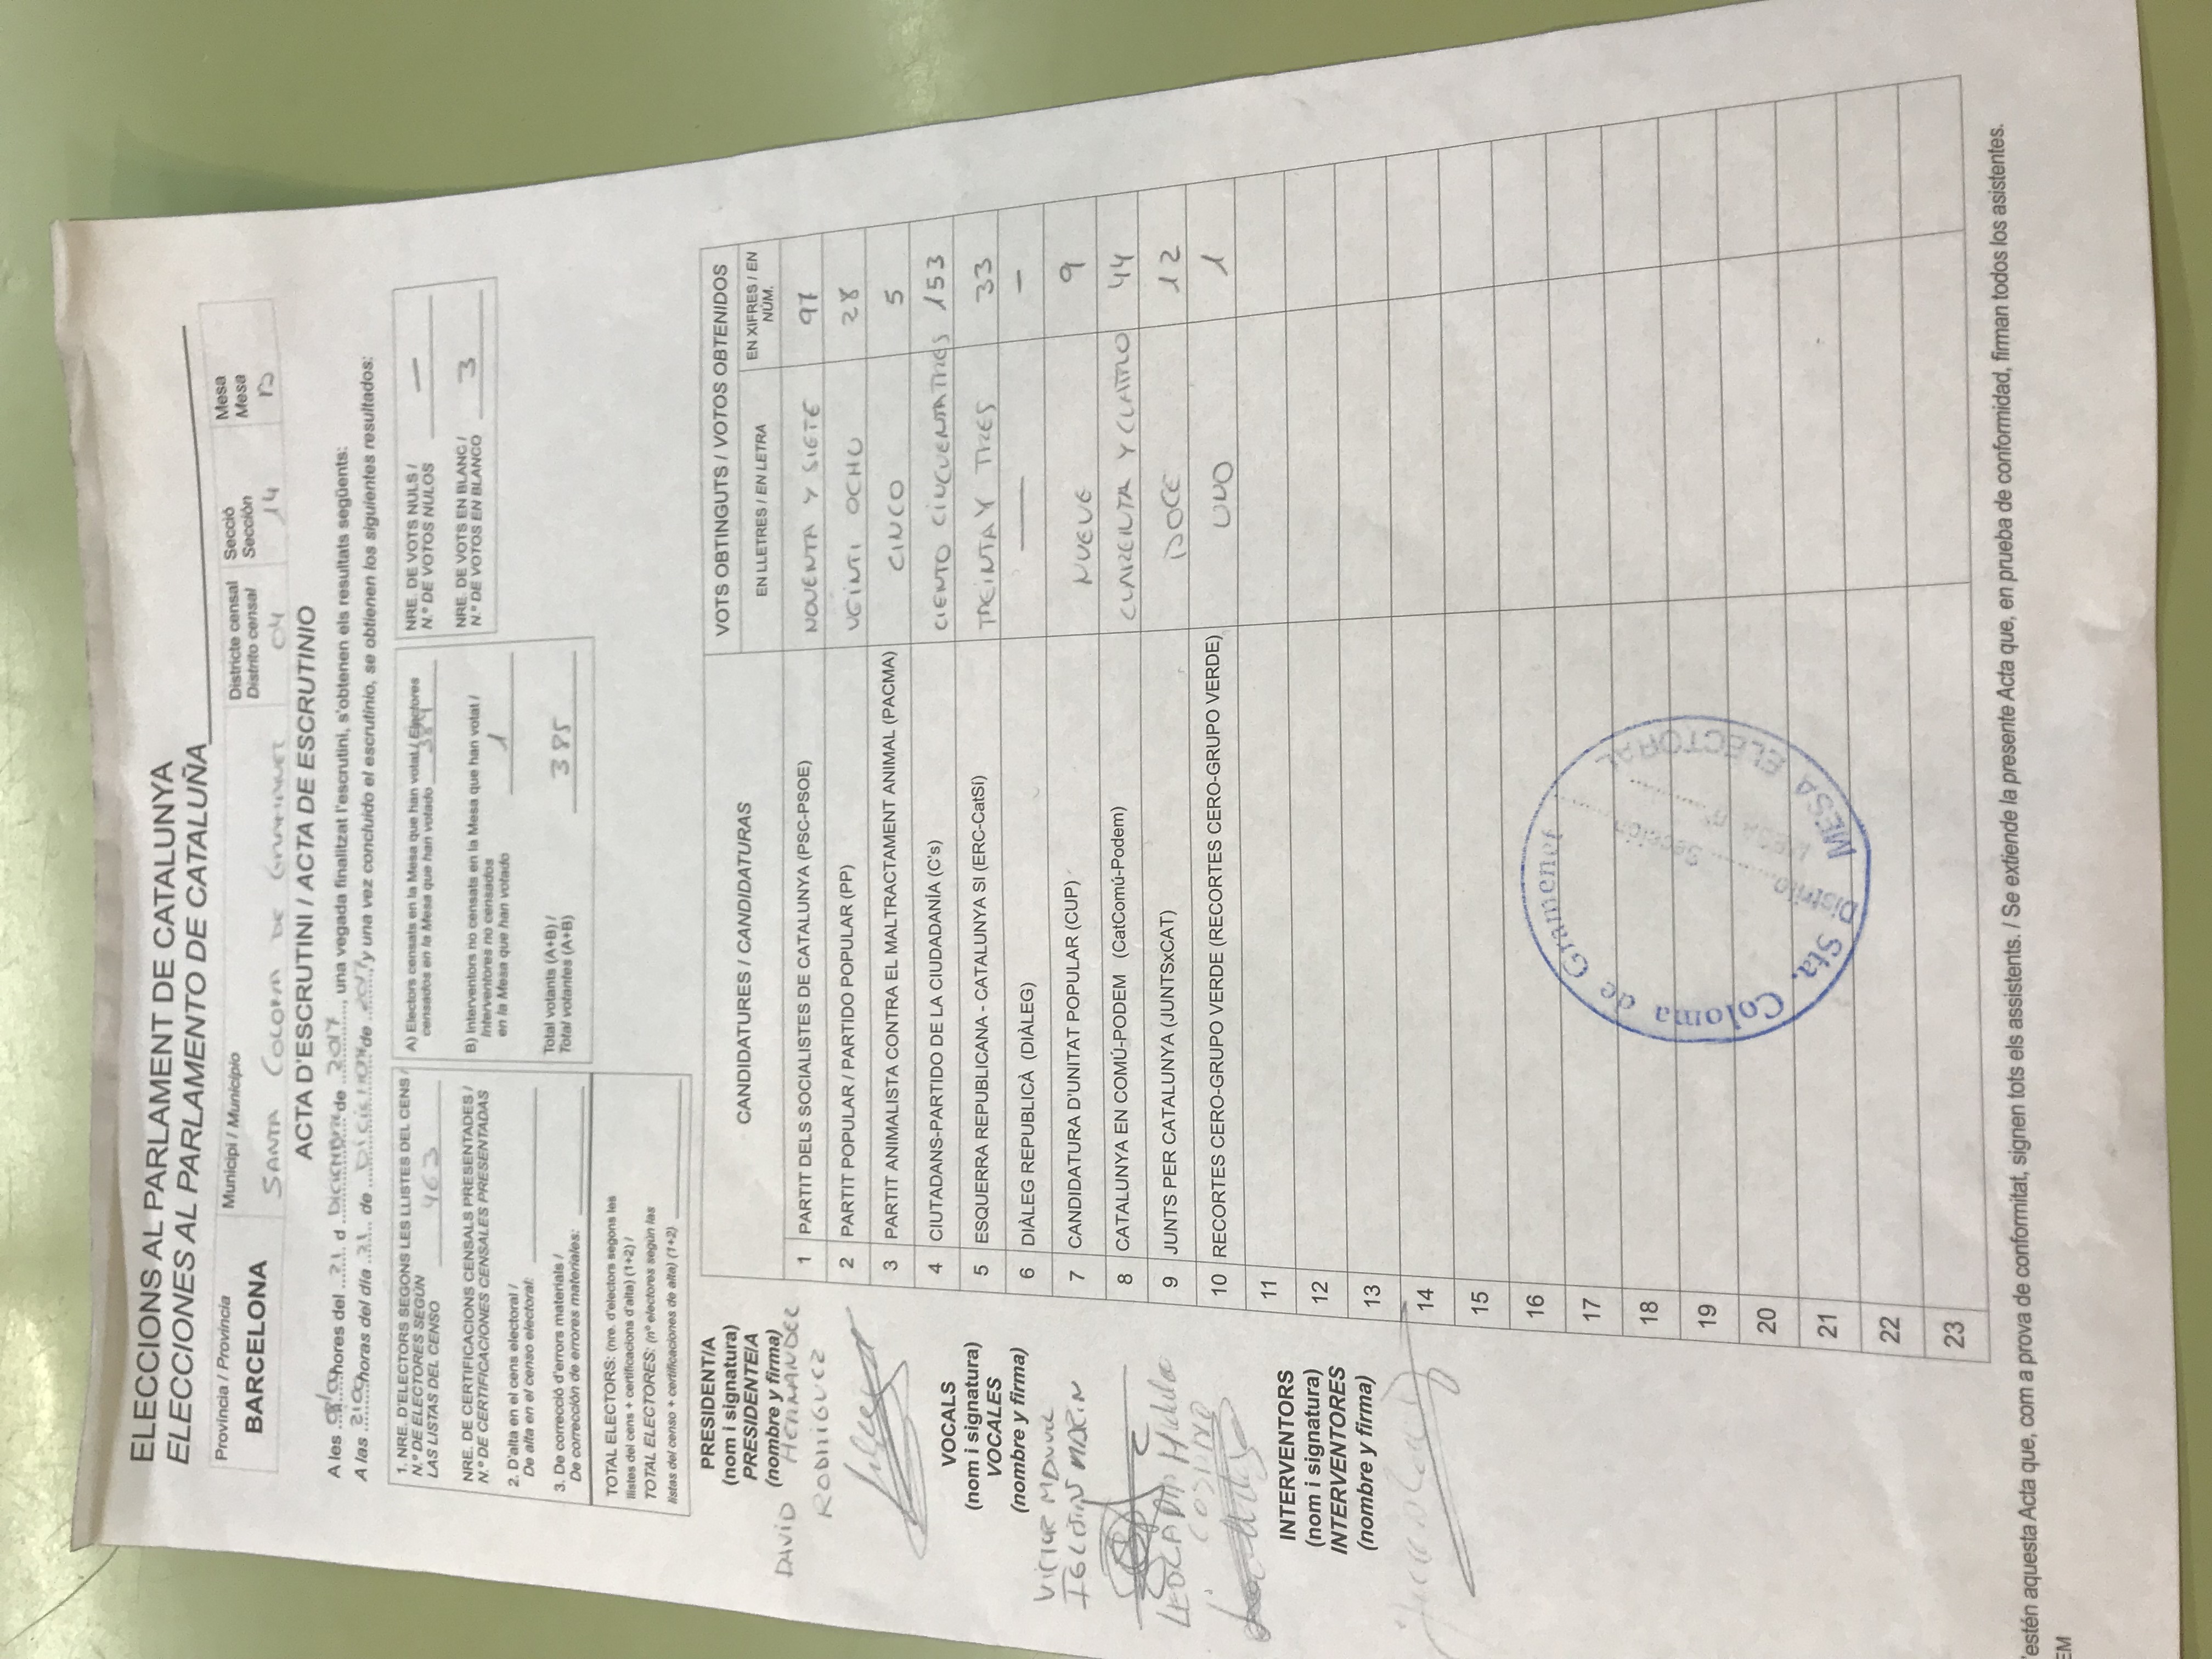 ELECCIONS AL PARLAMENT DE CATALUNYA
ELECCIONES AL PARLAMENTO DE CATALUÑA
Província / Provincia
BARCELONA
Municipi / Municipio
SANTA COLOMA DE GRAMANET
Districte censal
Distrito censal
04
Secció
Sección
14
Mesa
Mesa
B
ACTA D'ESCRUTINI / ACTA DE ESCRUTINIO
A les hores del 21 d DICIEMBRE de 2017, una vegada finalitzat l'escrutini, s'obtenen els resultats següents:
A las 2100 horas del día 21 de DICIEMBRE de 2017 y una vez concluido el escrutinio, se obtienen los siguientes resultados:
1. NRE. D'ELECTORS SEGONS LES LLISTES DEL CENS /
N.º DE ELECTORES SEGÚN
LAS LISTAS DEL CENSO 463
NRE. DE CERTIFICACIONS CENSALS PRESENTADES /
N.º DE CERTIFICACIONES CENSALES PRESENTADAS
2. D'alta en el cens electoral /
De alta en el censo electoral:
3. De correcció d'errors materials /
De corrección de errores materiales:
TOTAL ELECTORS: (nre. d'electors segons les
llistes del cens + certificacions d'alta) (1+2) /
TOTAL ELECTORES: (nº electores según las
listas del censo + certificaciones de alta) (1+2)
A) Electors censats en la Mesa que han votat / Electores
censados en la Mesa que han votado 384
B) Interventors no censats en la Mesa que han votat /
Interventores no censados
en la Mesa que han votado 1
Total votants (A+B) /
Total votantes (A+B) 385
NRE. DE VOTS NULS /
N.º DE VOTOS NULOS —
NRE. DE VOTS EN BLANC /
N.º DE VOTOS EN BLANCO 3
PRESIDENT/A
(nom i signatura)
PRESIDENTE/A
(nombre y firma)
DAVID HERNANDEZ
RODRIGUEZ
VOCALS
(nom i signatura)
VOCALES
(nombre y firma)
VICTOR MANUEL
IGLESIAS MARIN
LEOCADIA Hidalgo
INTERVENTORS
(nom i signatura)
INTERVENTORES
(nombre y firma)
CANDIDATURES / CANDIDATURAS
VOTS OBTINGUTS / VOTOS OBTENIDOS
EN LLETRES / EN LETRA
EN XIFRES / EN
NÚM.
1 PARTIT DELS SOCIALISTES DE CATALUNYA (PSC-PSOE) NOVENTA Y SIETE 97
2 PARTIT POPULAR / PARTIDO POPULAR (PP) VEINTI OCHO 28
3 PARTIT ANIMALISTA CONTRA EL MALTRACTAMENT ANIMAL (PACMA) CINCO 5
4 CIUTADANS-PARTIDO DE LA CIUDADANÍA (C's) CIENTO CINCUENTATRES 153
5 ESQUERRA REPUBLICANA - CATALUNYA SI (ERC-CatSí) TREINTA Y TRES 33
6 DIÀLEG REPUBLICÀ (DIÀLEG) — —
7 CANDIDATURA D'UNITAT POPULAR (CUP) NUEVE 9
8 CATALUNYA EN COMÚ-PODEM (CatComú-Podem) CUARENTA Y CUATRO 44
9 JUNTS PER CATALUNYA (JUNTSxCAT) DOCE 12
10 RECORTES CERO-GRUPO VERDE (RECORTES CERO-GRUPO VERDE) UNO 1
11
12
13
14
15
16
17
18
19
20
21
22
23
Sta. Coloma de Gramenet
Distrito........ Sección........
MESA nº........
MESA ELECTORAL
'estén aquesta Acta que, com a prova de conformitat, signen tots els assistents. / Se extiende la presente Acta que, en prueba de conformidad, firman todos los asistentes.
EM